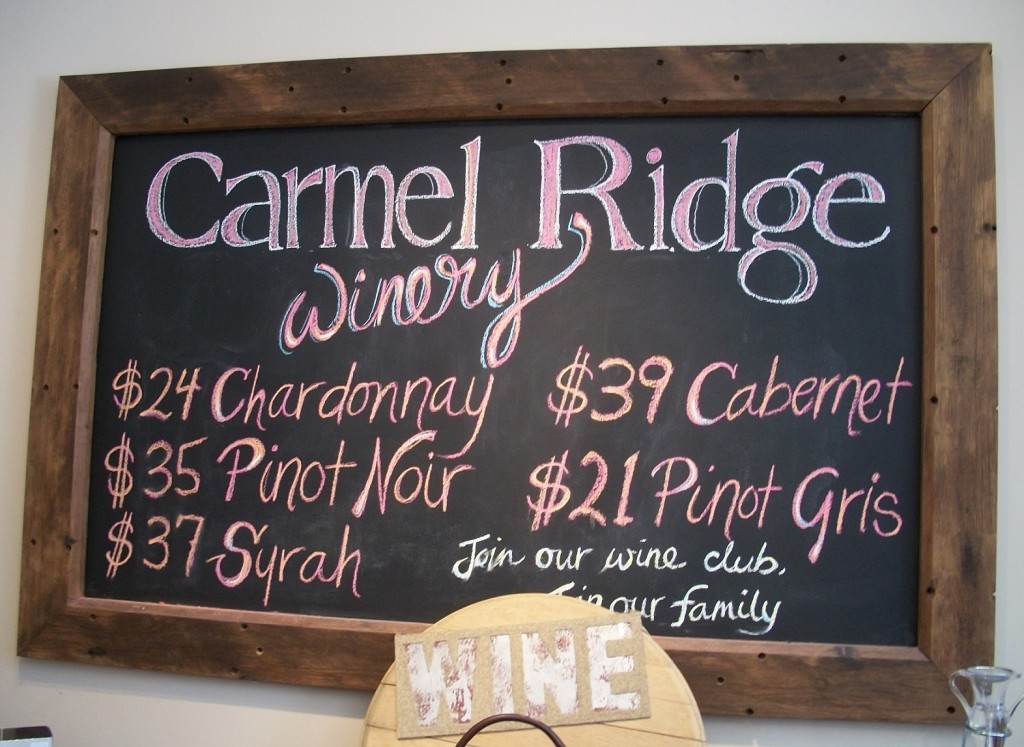 Carmel Ridge
winery
$24 Chardonnay
$35 Pinot Noir
$37 Syrah
$39 Cabernet
$21 Pinot Gris
Join our wine club.
Join our family
WINE